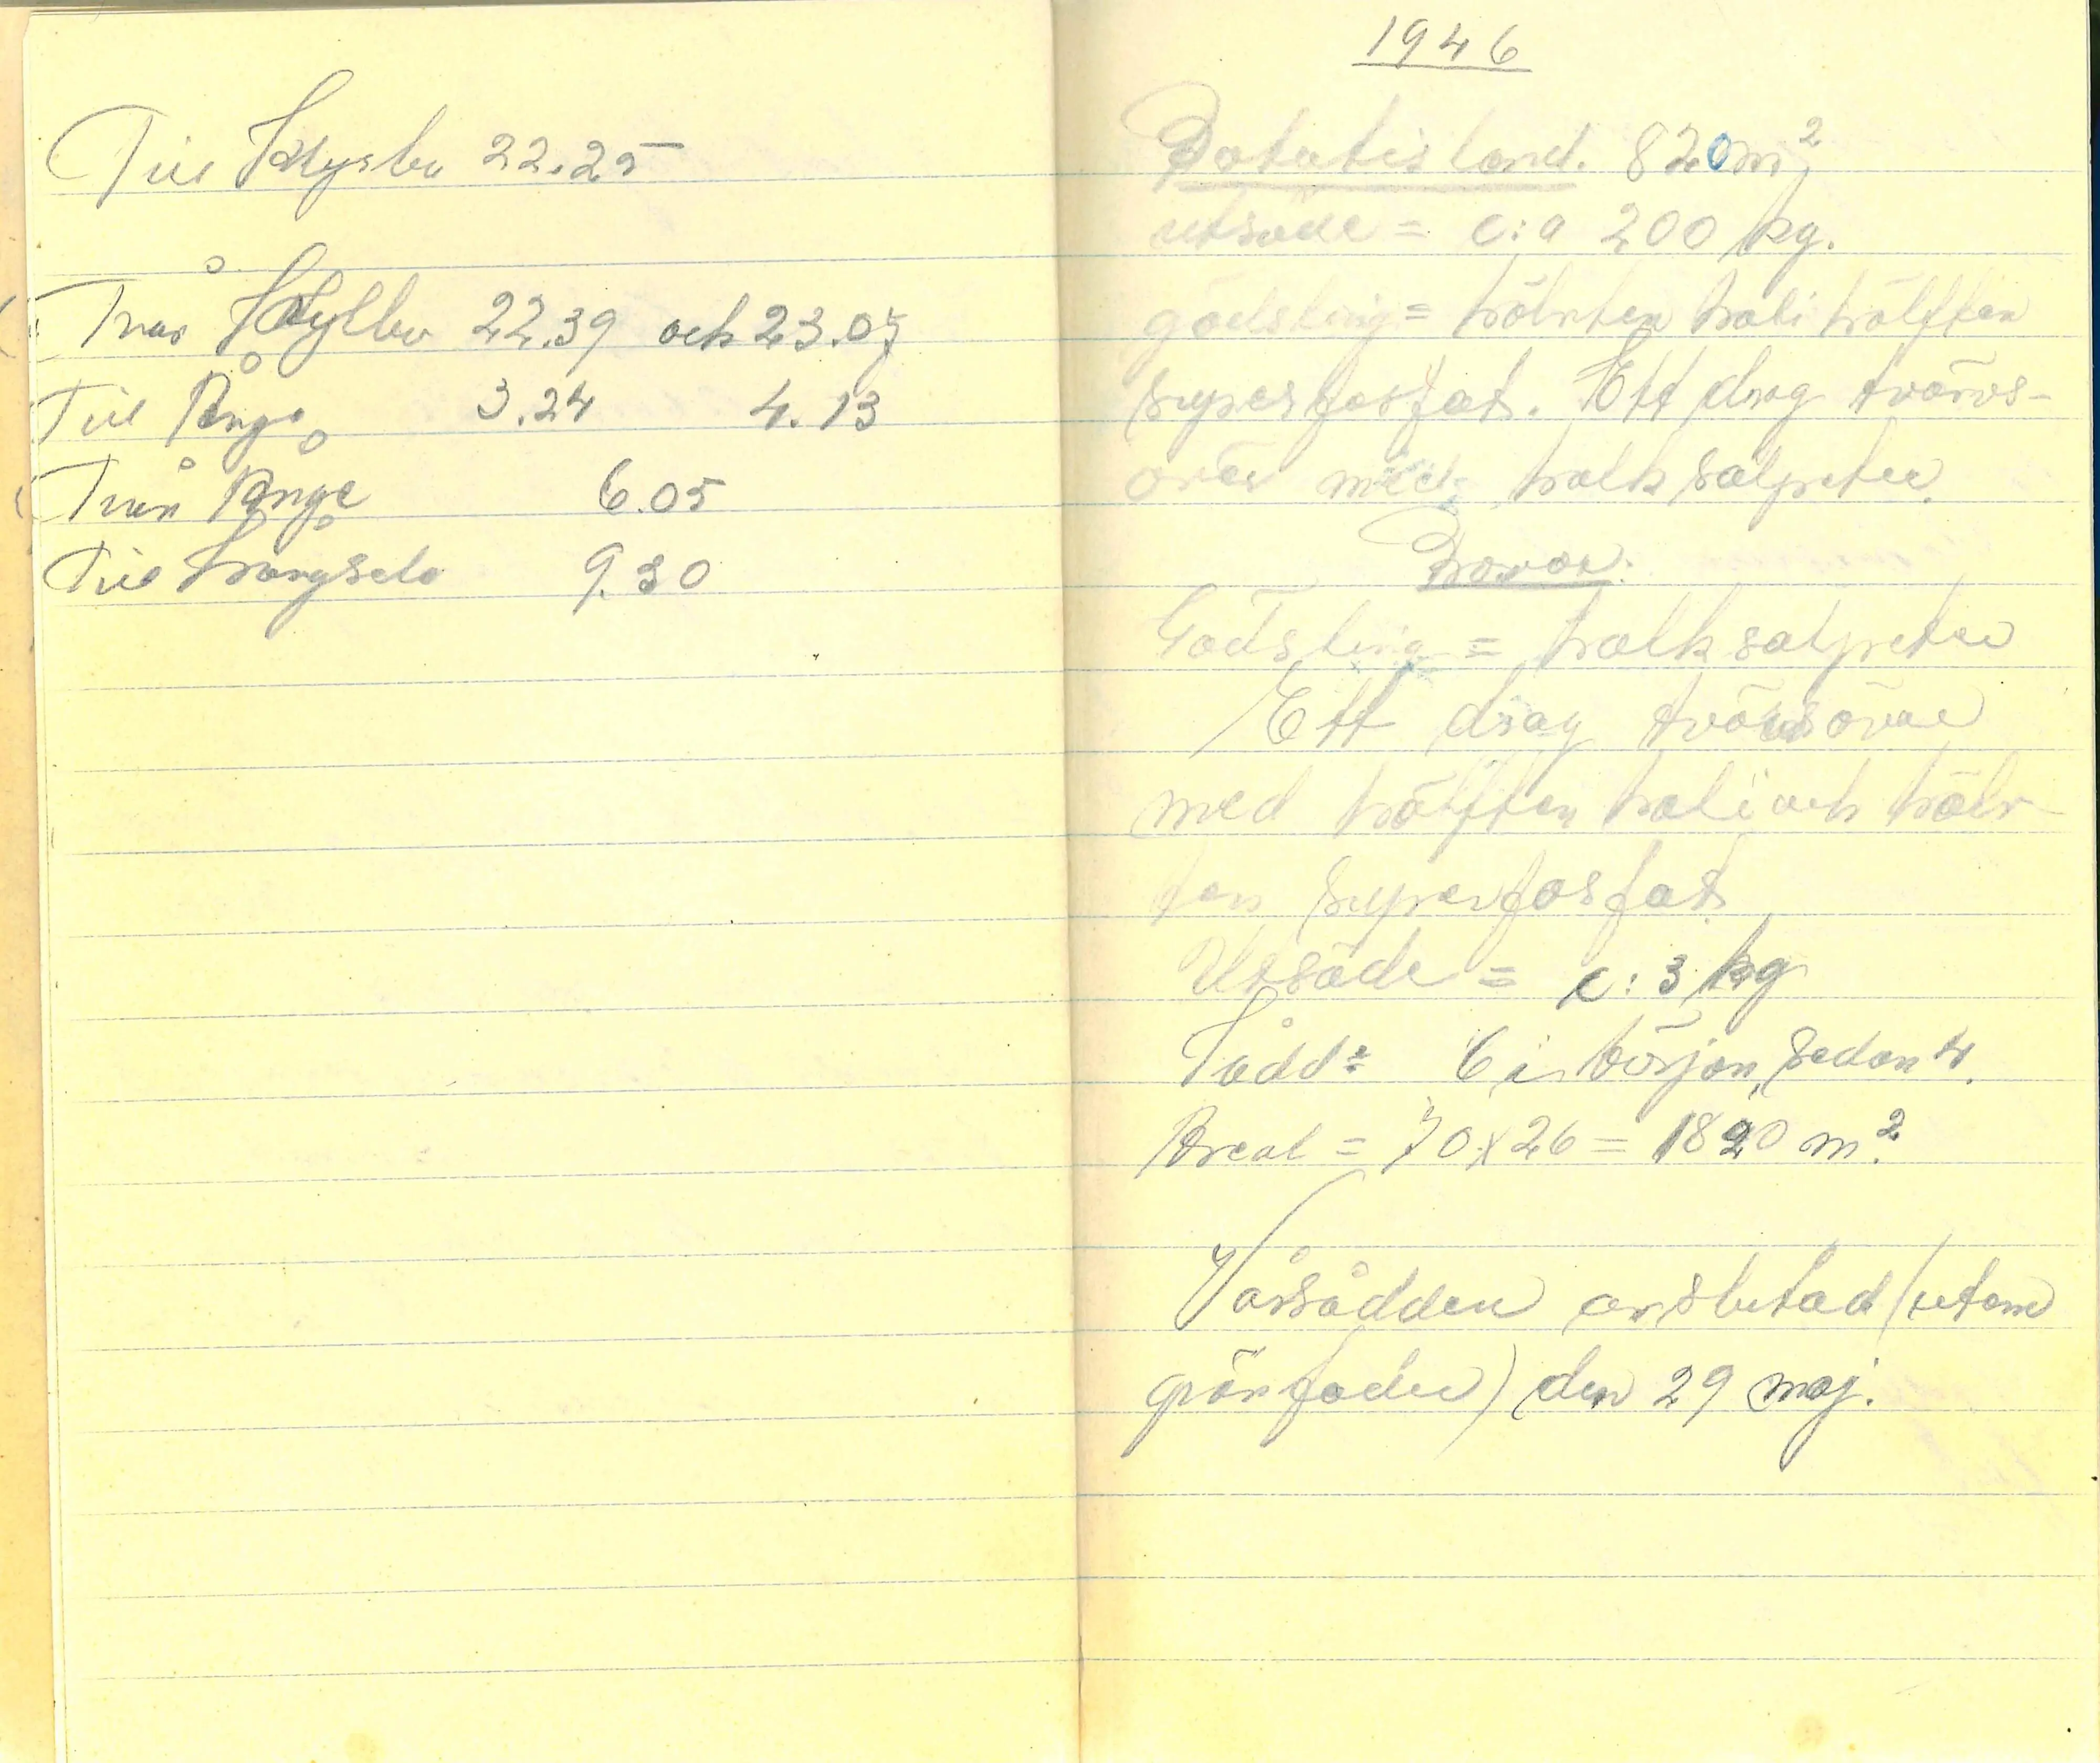 Till Krylbo 22.25
Från Krylbo 22.39 och 23.07
Till Ånge 3.24 4.13
Från Ånge 6.05
Till Långsele 9.30
1946
Potatisland. 820 m²
utsäde = c:a 200 kg.
gödsling = hälvten kali hälften
superfosfat. Ett drag tvärrs-
över med kalksalpeter.
Rovor.
Gödsling = kalksalpeter
Ett drag tvärsöver
med hälften kali och hälv
ten superfosfat
Utsäde = c: 3 kg
Sådd = 6 i början, sedan 4.
Areal = 70 x 26 = 1820 m².
Vårsådden avslutad (utom
grönfoder) den 29 maj.